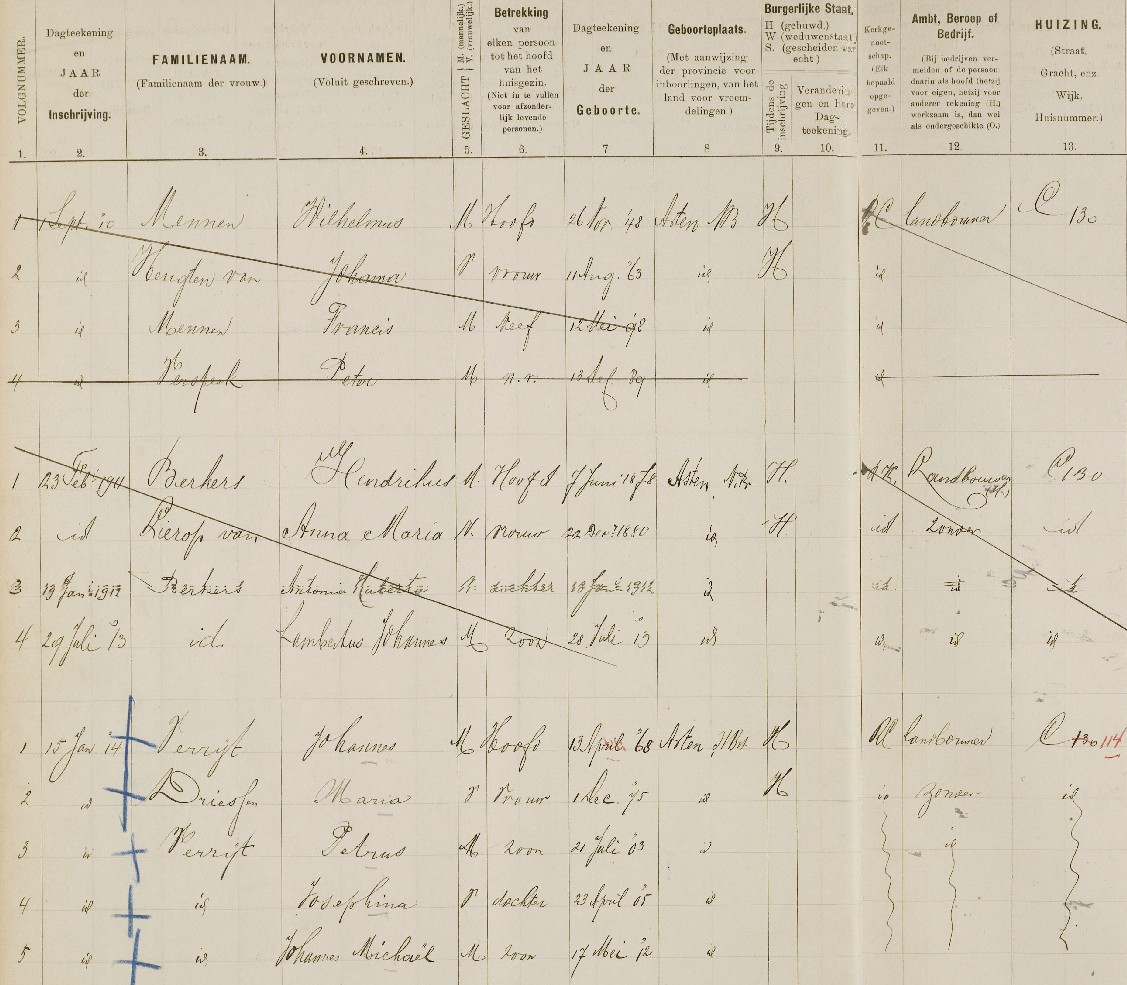 VOLGNUMMER.
1.
Dagteekening
en
JAAR
der
Inschrijving.
2.
FAMILIENAAM.
(Familienaam der vrouw.)
3.
VOORNAMEN.
(Voluit geschreven.)
4.
GESLACHT M. (mannelijk.) V. (vrouwelijk.)
5.
Betrekking
van
elken persoon
tot het hoofd
van het
huisgezin.
(Niet in te vullen
voor afzonder-
lijk levende
personen.)
6.
Dagteekening
en
JAAR
der
Geboorte.
7
Geboorteplaats.
(Met aanwijzing
der provincie voor
inboorlingen, van het
land voor vreem-
delingen)
8
Burgerlijke Staat,
H (gehuwd.)
W (weduwenstaat)
S. (gescheiden van
echt)
Tijdens de
inschrijving
9.
Veranderin-
gen en hare
Dag-
teekening.
10.
Kerkge-
noot-
schap.
(Elk
bepaald
opge-
geven.)
11.
Ambt, Beroep of
Bedrijf.
(Bij bedrijven ver-
melden of de persoon
daarin als hoofd (hetzij
voor eigen, hetzij voor
anderer rekening (H.)
werkzaam is, dan wel
als ondergeschikte (O.)
12.
HUIZING.
(Straat,
Gracht, enz
Wijk,
Huisnummer.)
13.
1 1 Sept. '10 Mennen Wilhelmus M Hoofd 26 Nov. '48 Asten NB H RC landbouwer C 130
2 id Hengten van Johanna V vrouw 11 Aug. '63 id H id
3 id Mennen Francis M Neef 12 Mei '98 id id
4 id Peter M n.v. 13 '89 id id
1 23 Feb. 1911 Berkers Hendrikus M. Hoofd 7 Juni 1878 Asten N.Br H. R.K. Landbouwer (H.) C 130
2 id Lierop van Anna Maria V. vrouw 22 Dec. 1880 id H. id zonder id
3 19 Jan. 1912 Berkers Antonia Huberta V. dochter 18 Jan. 1912 id id id id
4 29 Juli '13 id. Lambertus Johannes M zoon 28 Juli '13 id id id id
1 15 Jan '14 Verrijt Johannes M Hoofd 13 April '68 Asten NBt H RC landbouwer C 130 114
2 id Driessen Maria V Vrouw 1 Dec. '75 id H id zonder id
3 id Verrijt Petrus M zoon 21 Juli '03 id id
4 id id Josephina V dochter 23 April '05 id
5 id id Johannes Michaël M zoon 17 Mei '12 id